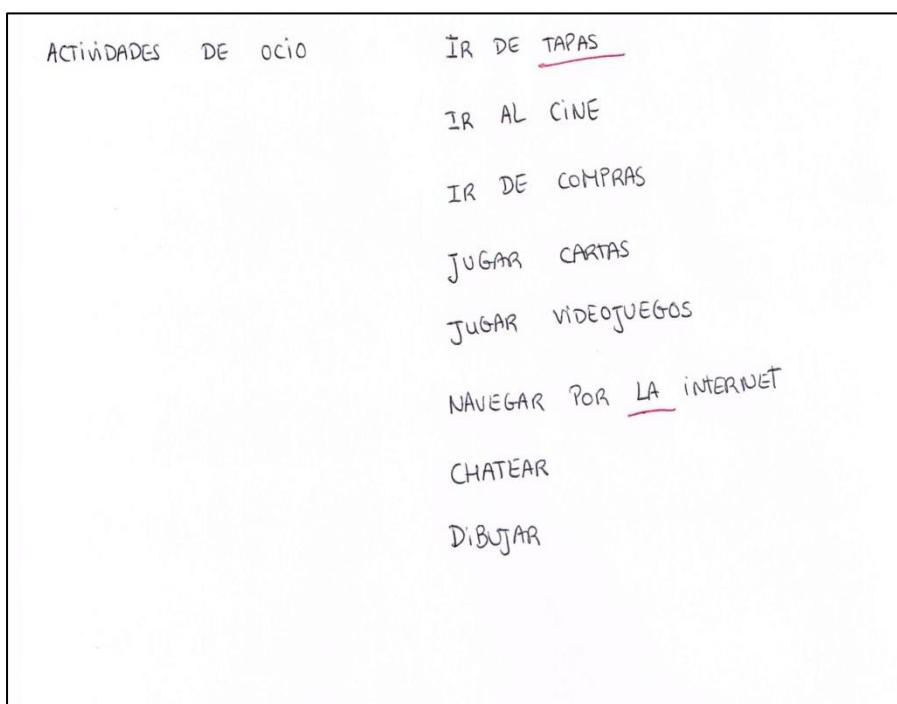 ACTIVIDADES DE OCIO
IR DE TAPAS
IR AL CINE
IR DE COMPRAS
JUGAR CARTAS
JUGAR VIDEOJUEGOS
NAVEGAR POR LA INTERNET
CHATEAR
DIBUJAR